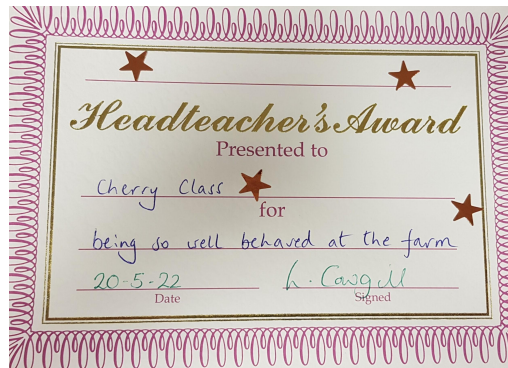 Headteacher's Award
Presented to
Cherry Class
for
being so well behaved at the farm
20-5-22 L. Cowgill
Date Signed